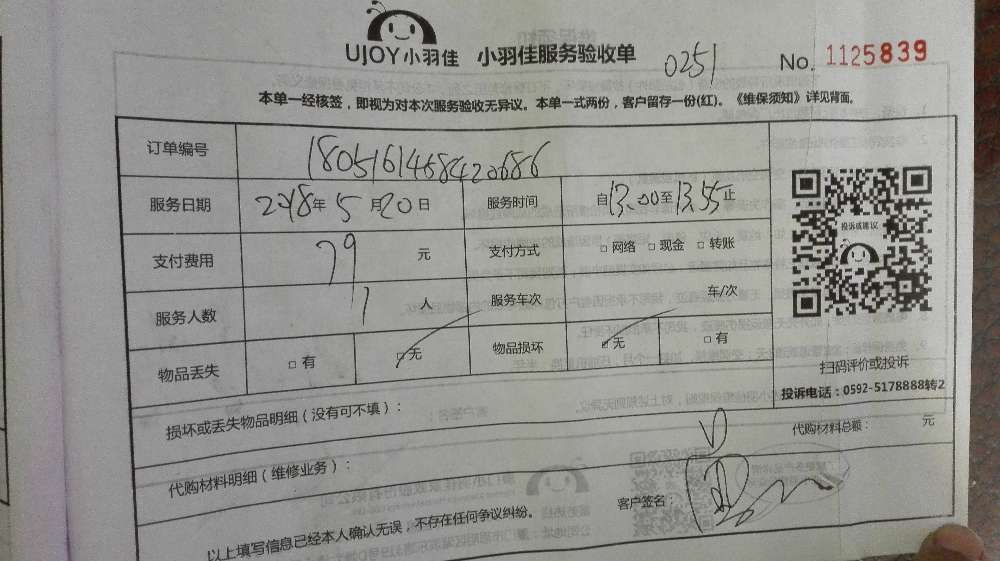 UJOY小羽佳 小羽佳服务验收单 0251 No. 1125839
本单一经核签，即视为对本次服务验收无异议。本单一式两份，客户留存一份(红)。《维保须知》详见背面。
订单编号 180516145842068б
服务日期 2018年5月20日 服务时间 自13:00至13:55止
支付费用 79 元 支付方式 □网络 □现金 □转账
服务人数 1 人 服务车次 车/次
物品丢失 □有 □无 物品损坏 □无 □有
投诉或建议
扫码评价或投诉
投诉电话：0592-5178888转2
损坏或丢失物品明细（没有可不填）：
代购材料总额： 元
代购材料明细（维修业务）：
客户签名：
以上填写信息已经本人确认无误，不存在任何争议纠纷。